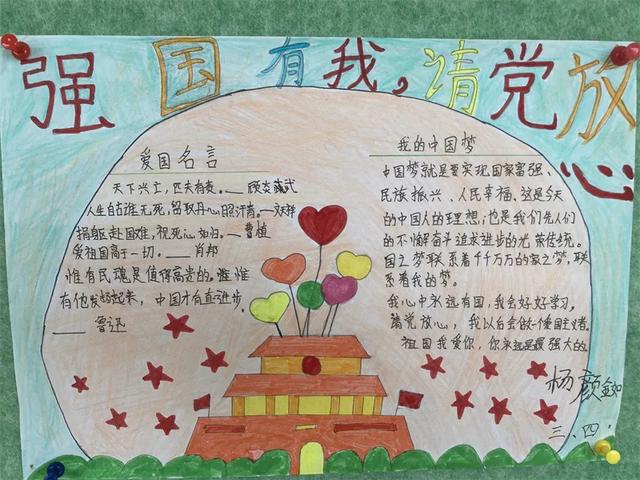 强国有我,请党放心
爱国名言
天下兴亡,匹夫有责。——顾炎武
人生自古谁无死,留取丹心照汗青。—文天祥
捐躯赴国难,视死忽如归。—曹植
爱祖国高于一切。——肖邦
惟有民魂是值得高贵的。惟惟
有他发扬起来,中国才有真进步。
——鲁迅
我的中国梦
中国梦就是要实现国家富强、
民族振兴、人民幸福、这是今天
的中国人的理想;也是我们先人们
的不懈奋斗追求进步的光荣传统。
国之梦联系着千千万万的家之梦,联
系着我的梦。
我心中永远有国,我会好好学习,
请党放心,我以后会做
祖国我爱你,你永远是最强大的。
杨颜
三、四